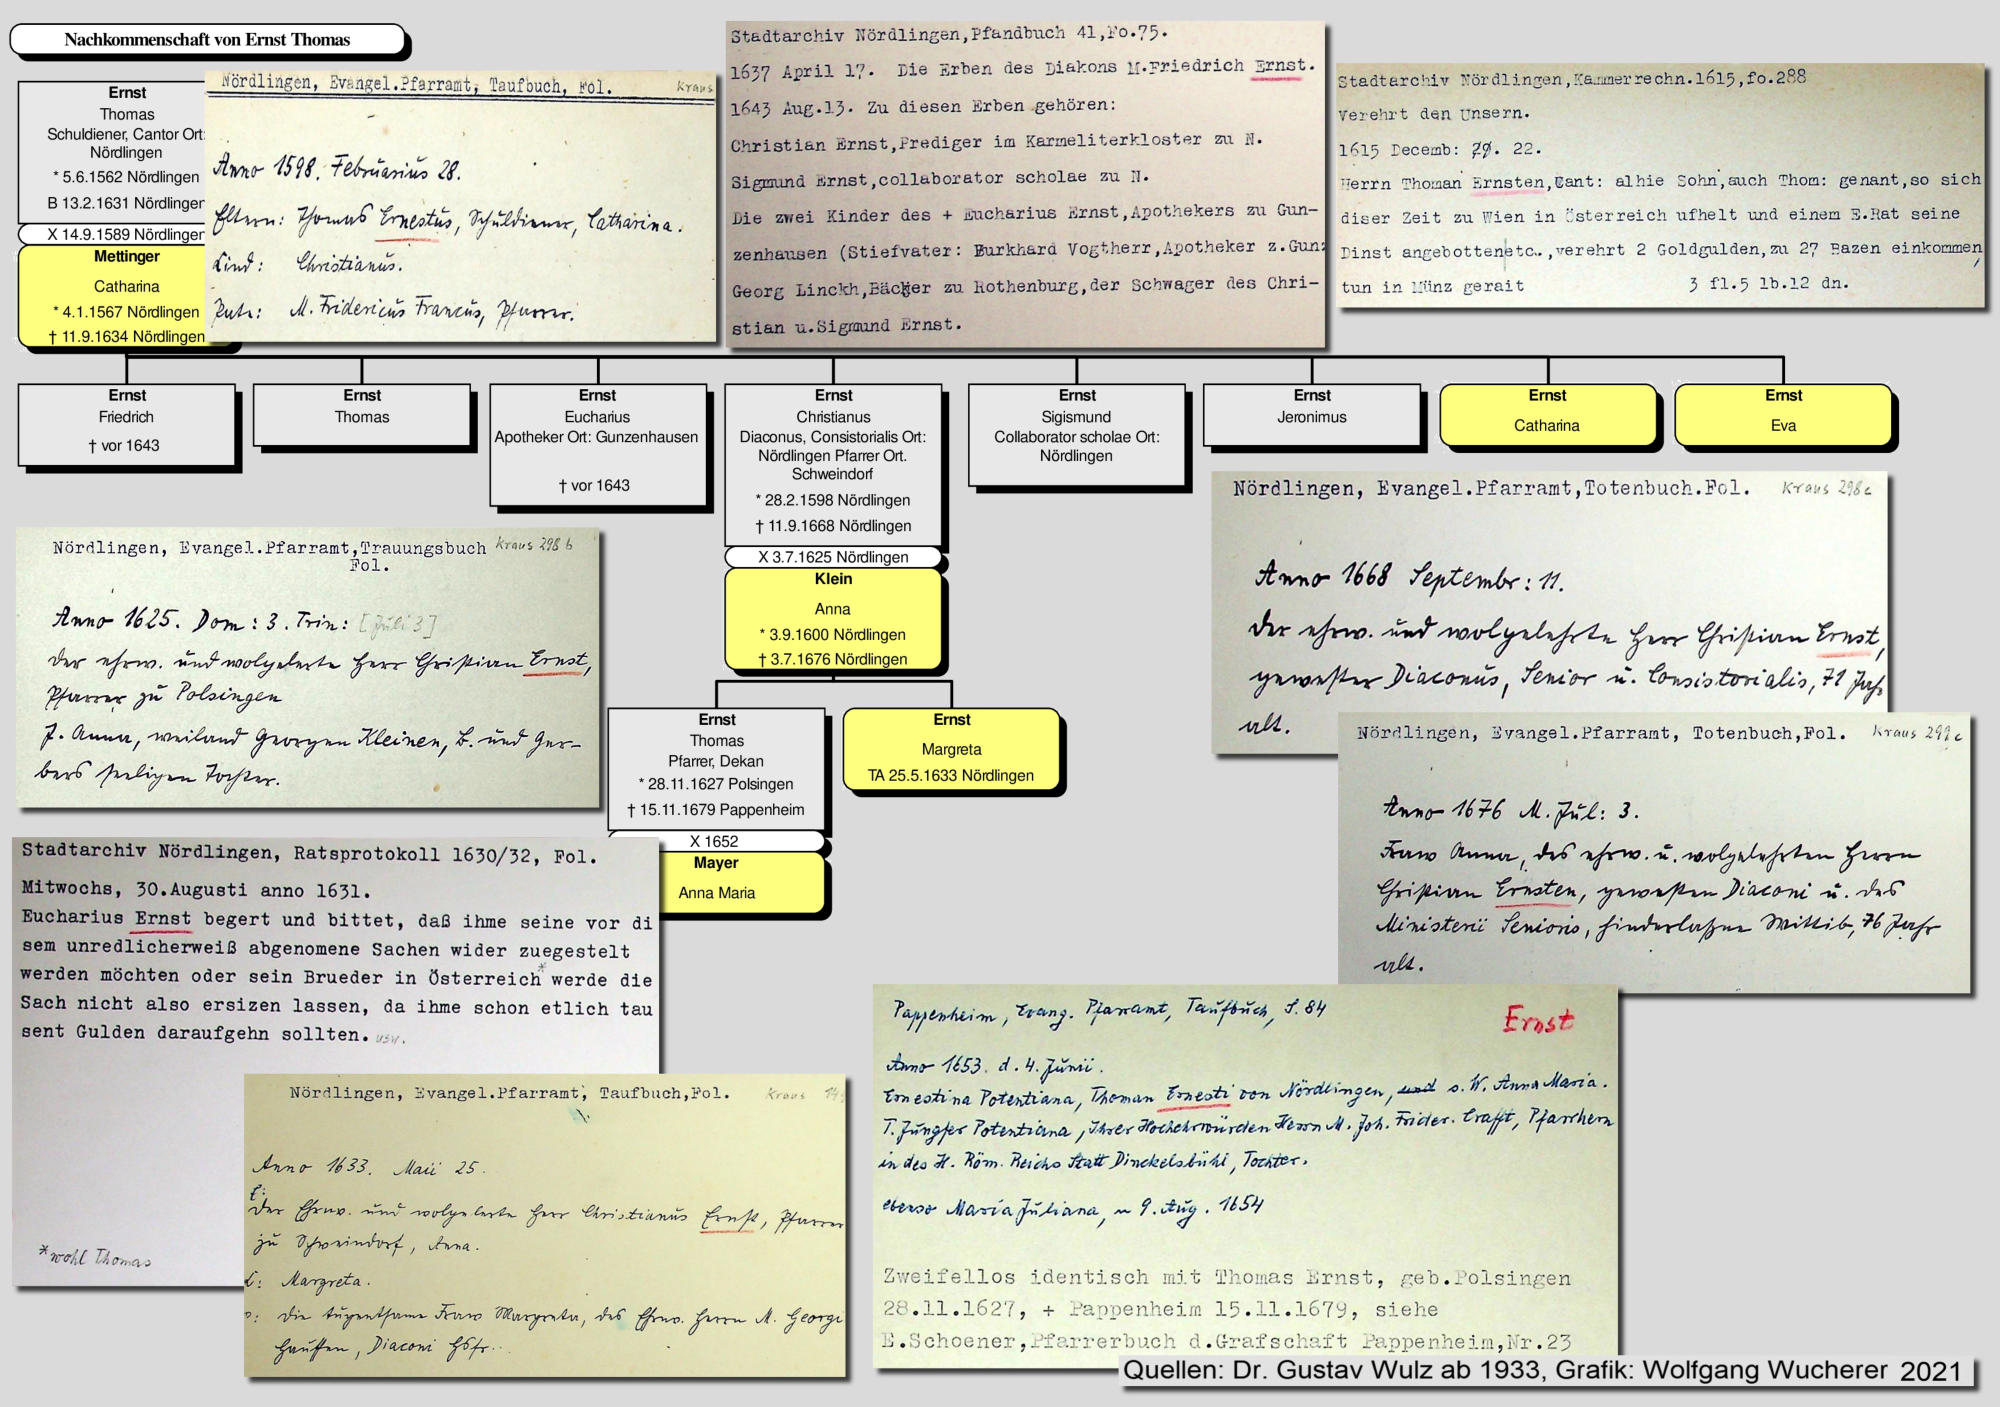 Nachkommenschaft von Ernst Thomas
Ernst
Thomas
Schuldiener, Cantor Ort:
Nördlingen
* 5.6.1562 Nördlingen
B 13.2.1631 Nördlingen
X 14.9.1589 Nördlingen
Mettinger
Catharina
* 4.1.1567 Nördlingen
† 11.9.1634 Nördlingen
Nördlingen, Evangel.Pfarramt, Taufbuch, Fol. Kraus
Anno 1598. Februarius 28.
Eltern: Thomas Ernestus, Schuldiener, Catharina.
Kind: Christianus.
Pate: M. Fridericus Francus, Pfarrer.
Stadtarchiv Nördlingen,Pfandbuch 41,Fo.75.
1637 April 17. Die Erben des Diakons M.Friedrich Ernst.
1643 Aug.13. Zu diesen Erben gehören:
Christian Ernst,Prediger im Karmeliterkloster zu N.
Sigmund Ernst,collaborator scholae zu N.
Die zwei Kinder des + Eucharius Ernst,Apothekers zu Gun-
zenhausen (Stiefvater: Burkhard Vogtherr,Apotheker z.Gunz
Georg Linckh,Bäcker zu Rothenburg,der Schwager des Chri-
stian u.Sigmund Ernst.
Stadtarchiv Nördlingen,Kammerrechn.1615,fo.288
Verehrt den Unsern.
1615 Decemb: 22.
Herrn Thoman Ernsten,Cant: alhie Sohn,auch Thom: genant,so sich
diser Zeit zu Wien in Österreich ufhelt und einem E.Rat seine
Dinst angebottenetc.,verehrt 2 Goldgulden,zu 27 Bazen einkommen,
tun in Münz gerait 3 fl.5 lb.12 dn.
Ernst
Friedrich
† vor 1643
Ernst
Thomas
Ernst
Eucharius
Apotheker Ort: Gunzenhausen
† vor 1643
Ernst
Christianus
Diaconus, Consistorialis Ort:
Nördlingen Pfarrer Ort.
Schweindorf
* 28.2.1598 Nördlingen
† 11.9.1668 Nördlingen
X 3.7.1625 Nördlingen
Klein
Anna
* 3.9.1600 Nördlingen
† 3.7.1676 Nördlingen
Ernst
Sigismund
Collaborator scholae Ort:
Nördlingen
Ernst
Jeronimus
Ernst
Catharina
Ernst
Eva
Nördlingen, Evangel.Pfarramt,Trauungsbuch Kraus 298 b
Fol.
Anno 1625. Dom: 3. Trin: [Juli 3]
Der ehrw. und wolgelerte Herr Christian Ernst,
Pfarrer zu Polsingen
J. Anna, weiland Georgen Kleinen, B. und Ger-
bers seeligen Tochter.
Nördlingen, Evangel.Pfarramt,Totenbuch.Fol. Kraus 298c
Anno 1668 Septembr: 11.
Der ehrw. und wolgelehrte Herr Christian Ernst,
gewester Diaconus, Senior u. Consistorialis, 71 Jahr
alt.
Ernst
Thomas
Pfarrer, Dekan
* 28.11.1627 Polsingen
† 15.11.1679 Pappenheim
X 1652
Mayer
Anna Maria
Ernst
Margreta
TA 25.5.1633 Nördlingen
Nördlingen, Evangel.Pfarramt, Totenbuch,Fol. Kraus 299c
Anno 1676 M. Jul: 3.
Fraw Anna, des ehrw. u. wolgelehrten Herrn
Christian Ernsten, gewesten Diaconi u. des
Ministerii Senioris, hinderlaßne Wittib, 76 Jahr
alt.
Stadtarchiv Nördlingen, Ratsprotokoll 1630/32, Fol.
Mitwochs, 30.Augusti anno 1631.
Eucharius Ernst begert und bittet, daß ihme seine vor di
sem unredlicherweiß abgenomene Sachen wider zuegestelt
werden möchten oder sein Brueder in Österreich* werde die
Sach nicht also ersizen lassen, da ihme schon etlich tau
sent Gulden daraufgehn sollten. usw.
*wohl Thomas
Nördlingen, Evangel.Pfarramt, Taufbuch,Fol. Kraus
Anno 1633. Maii 25.
E:
Der Ehrw. und wolgelerte Herr Christianus Ernst, Pfarrer
zu Schweindorf, Anna.
K: Margreta.
P: Die tugentsame Fraw Margreta, des Ehrw. Herrn M. Georgi
Hauffen, Diaconi Hsfr..
Pappenheim, Evang. Pfarramt, Taufbuch, S. 84 Ernst
Anno 1653. d. 4. Junii.
Ernestina Potentiana, Thoman Ernesti von Nördlingen, und s. W. Anna Maria.
T. Jungfer Potentiana, Ihrer Hochehrwürden Herrn M. Joh. Frider. Crafft, Pfarrhern
in des H. Röm. Reichs Statt Dinckelsbühl, Tochter.
ebenso Maria Juliana, ~ 9. Aug. 1654
Zweifellos identisch mit Thomas Ernst, geb.Polsingen
28.11.1627, + Pappenheim 15.11.1679, siehe
E.Schoener,Pfarrerbuch d.Grafschaft Pappenheim,Nr.23
Quellen: Dr. Gustav Wulz ab 1933, Grafik: Wolfgang Wucherer 2021